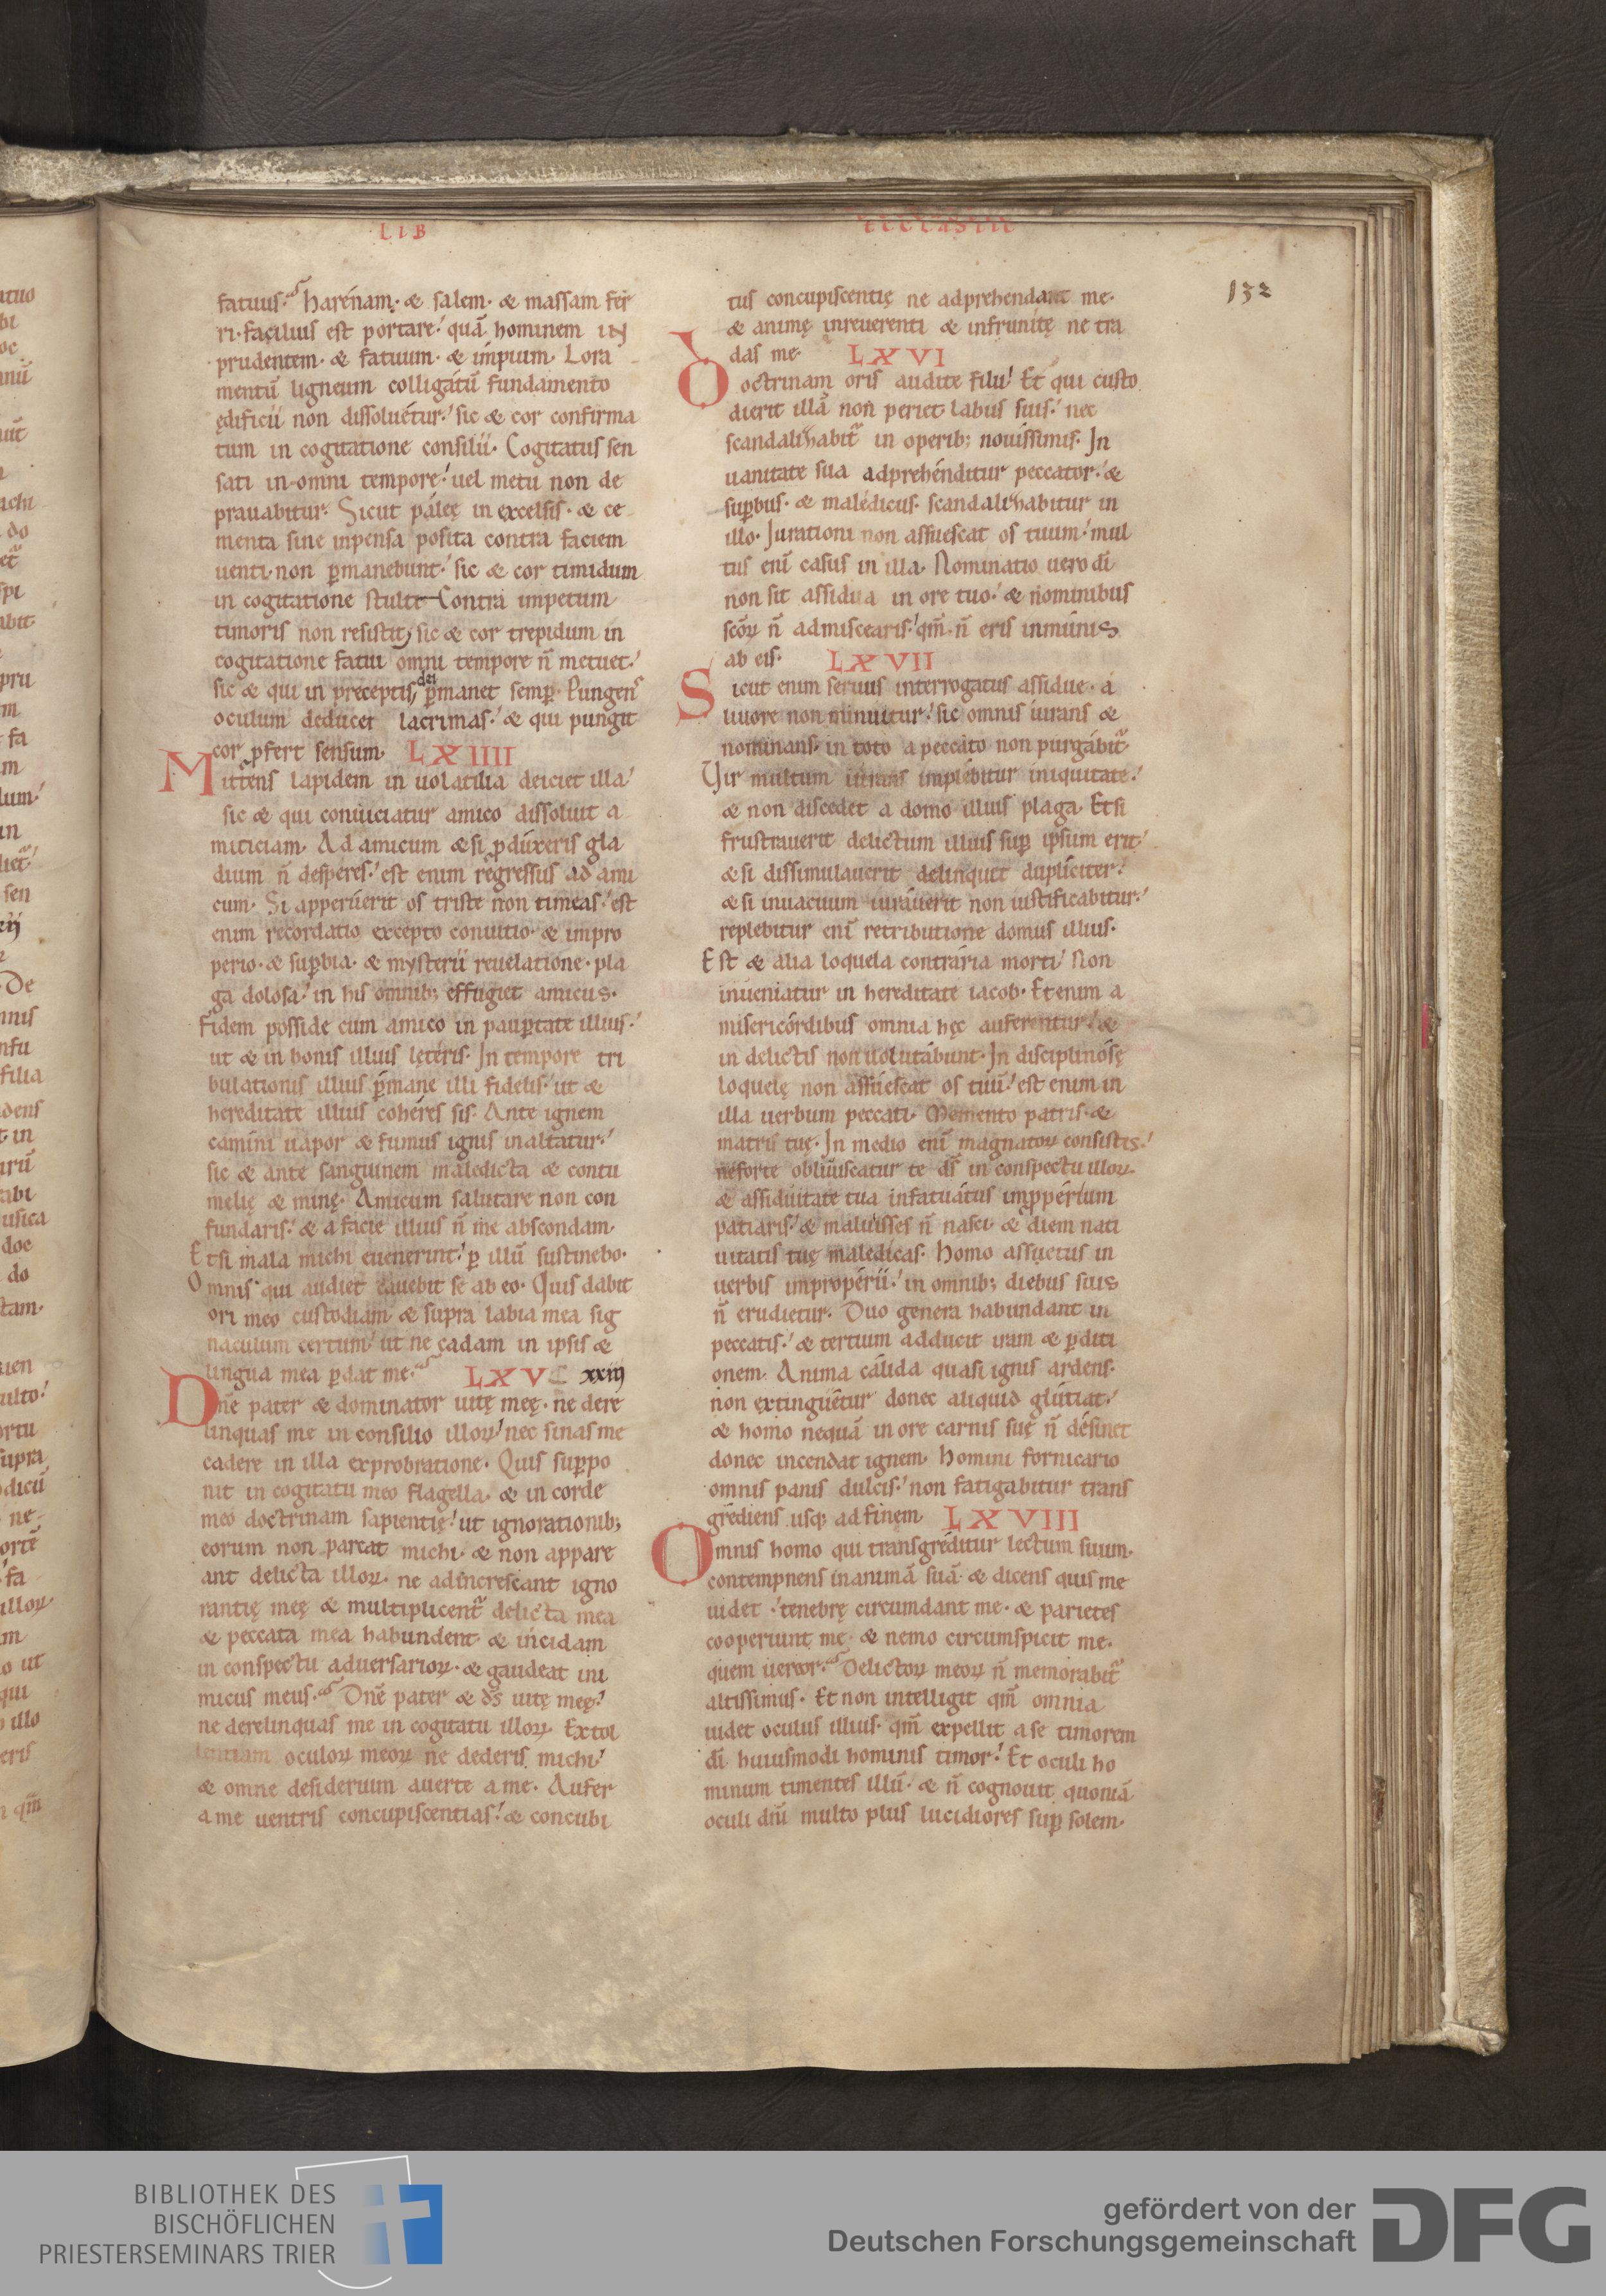 LIB
ECCLASTIC
132
fatuus. Harenam. & salem. & massam fer
ri. facilius est portare. quā hominem IN
prudentem. & fatuum. & impium. Lora
mentū ligneum colligatū fundamento
ędificii non dissoluetur. sic & cor confirma
tum in cogitatione consilii. Cogitatus sen
sati in omni tempore. uel metu non de
prauabitur. Sicut paleę in excelsis. & ce
menta sine inpensa posita contra faciem
uenti. non ꝑmanebunt. sic & cor timidum
in cogitatione stulti Contra impetum
timoris non resistit, sic & cor trepidum in
cogitatione fatui omni tempore n̄ metuet.
sic & qui in preceptis dei ꝑmanet semꝑ. Pungens
oculum deducet lacrimas. & qui pungit
cor ꝓfert sensum. LXIIII
Mittens lapidem in uolatilia deiciet illa
sic & qui conuiciatur amico dissoluit a
miticiam. Ad amicum & si ꝓduxeris gla
dium n̄ desperes. est enim regressus ad ami
cum. Si apperuerit os triste non timeas. est
enim recordatio excepto conuitio. & impro
perio. & suꝑbia. & mysterii reuelatione. pla
ga dolosa. in his omnib; effugiet amicus.
Fidem posside cum amico in pauꝑtate illius.
ut & in bonis illius lęteris. In tempore tri
bulationis illius ꝑmane illi fidelis. ut &
hereditate illius coheres sis. Ante ignem
camini uapor & fumus ignis inaltatur.
sic & ante sanguinem maledicta & contu
melię & minę. Amicum salutare non con
fundaris. & a facie illius n̄ me abscondam.
Etsi mala michi euenerint. ꝑ illū sustinebo.
Omnis qui audiet cauebit se ab eo. Quis dabit
ori meo custodiam & supra labia mea sig
naculum certum. ut ne cadam in ipsis &
lingua mea ꝑdat me. LXV xxiij
Dn̄e pater & dominator uitę meę. ne dere
linquas me in consilio illoꝝ. nec sinas me
cadere in illa exprobratione. Quis suꝑpo
nit in cogitatu meo flagella. & in corde
meo doctrinam sapientię. ut ignorationib;
eorum non parcat michi. & non appare
ant delicta illoꝝ. ne adincrescant igno
rantię meę & multiplicent᷑ delicta mea
& peccata mea habundent & incidam
in conspectu aduersarioꝝ. & gaudeat ini
micus meus. Dn̄e pater & d̄s uitę meę.
ne derelinquas me in cogitatu illoꝝ. Extol
lentiam oculoꝝ meoꝝ ne dederis michi.
& omne desiderium auerte a me. Aufer
a me uentris concupiscentias. & concubi
tus concupiscentię ne adprehendant me.
& animę inreuerenti & infrunitę ne tra
das me. LXVI
Doctrinam oris audite filii. Et qui custo
dierit illā non periet labiis suis. nec
scandalihabit᷑ in operib; nouissimis. In
uanitate sua adprehenditur peccator. &
suꝑbus. & maledicus. scandalihabitur in
illo. Jurationi non assuescat os tuum. mul
tus enī casus in illa. Nominatio uero dī
non sit assidua in ore tuo. & nominibus
sc̄oꝝ n̄ admiscearis. qm̄ n̄ eris inmunis
ab eis. LXVII
Sicut enim seruus interrogatus assidue. a
liuore non minuitur. sic omnis iurans &
nominans. in toto a peccato non purgabit᷑.
Vir multum iurans implebitur iniquitate.
& non discedet a domo illius plaga. Etsi
frustrauerit delictum illius suꝑ ipsum erit.
& si dissimulauerit delinquit dupliciter.
& si inuacuum iurauerit non iustificabitur.
replebitur enī retributione domus illius.
Est & alia loquela contraria morti. Non
inueniatur in hereditate iacob. Etenim a
misericordibus omnia hęc auferentur. &
in delictis non uolutabunt. In disciplinosę
loquelę non assuescat os tuū. est enim in
illa uerbum peccati. Memento patris. &
matris tuę. In medio enī magnatoꝝ consistis.
neforte obliuiscatur te d̄s in conspectu illoꝝ.
& assiduitate tua infatuatus imꝓperium
patiaris. & maluisses n̄ nasci. & diem nati
uitatis tuę maledicas. Homo assuetus in
uerbis improperii. in omnib; diebus suis
n̄ erudietur. Duo genera habundant in
peccatis. & tertium adducit iram & ꝑditi
onem. Anima calida quasi ignis ardens.
non extinguetur donec aliquid glutiat.
& homo nequā in ore carnis suę n̄ desinet
donec incendat ignem. Homini fornicario
omnis panis dulcis. non fatigabitur trans
grediens usq; ad finem. LXVIII
Omnis homo qui transgreditur lectum suum.
contempnens in animā suā. & dicens quis me
uidet. tenebrę circumdant me. & parietes
cooperiunt me. & nemo circumspicit me.
quem uereor. Delictoꝝ meoꝝ n̄ memorabit᷑
altissimus. Et non intelligit qm̄ omnia
uidet oculus illius. qm̄ expellit a se timorem
dī huiusmodi hominis timor. Et oculi ho
minum timentes illū. & n̄ cognouit quoniā
oculi dn̄i multo plus lucidiores suꝑ solem.
BIBLIOTHEK DES
BISCHÖFLICHEN
PRIESTERSEMINARS TRIER
gefördert von der
Deutschen Forschungsgemeinschaft
DFG